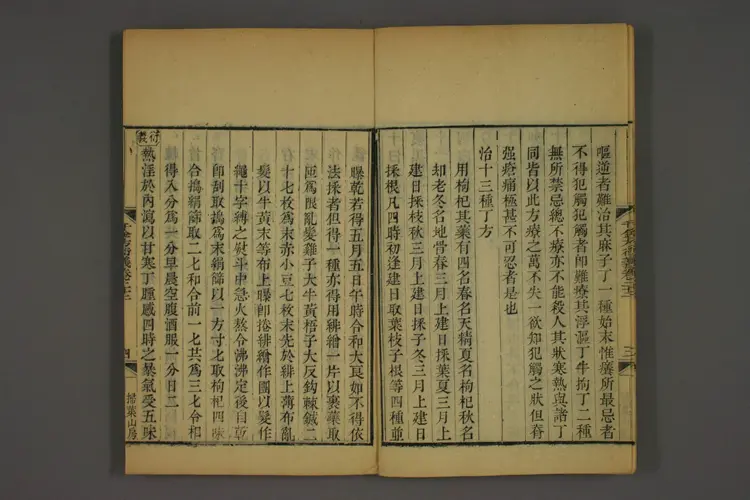 嘔逆者難治其麻子丁一種始末惟癢所最忌者
不得犯觸犯觸者即難療其浮漚丁牛拘丁二種
無所禁忌總不療亦不能殺人其狀寒熱與諸丁
同皆以此方療之萬不失一欲知犯觸之狀但脊
强瘡痛極甚不可忍者是也
治十三種丁方
用枸杞其藥有四名春名天精夏名枸杞秋名
却老冬名地骨春三月上建日採葉夏三月上
建日採枝秋三月上建日採子冬三月上建日
採根凡四時初逢建日取葉枝子根等四種並
曝乾若得五月五日午時合和大良如不得依
法採者但得一種亦得用緋繒一片以裹藥取
匝為限亂髮雞子大牛黃梧子大反鈎棘鍼二
十七枚為末赤小豆七枚末先於緋上薄布亂
髮以牛黃末等布上曝即捲緋繒作團以髮作
繩十字縛之熨斗中急火熬令沸沸定後自乾
即刮取搗為末絹篩以一方寸匕取枸杞四味
合搗絹篩取二匕和合前一匕共為三匕令相
得入分為二分早晨空腹酒服一分日二
衍義
熱淫於內瀉以甘寒丁腫感四時之暴氣受五味
四
掃葉山房